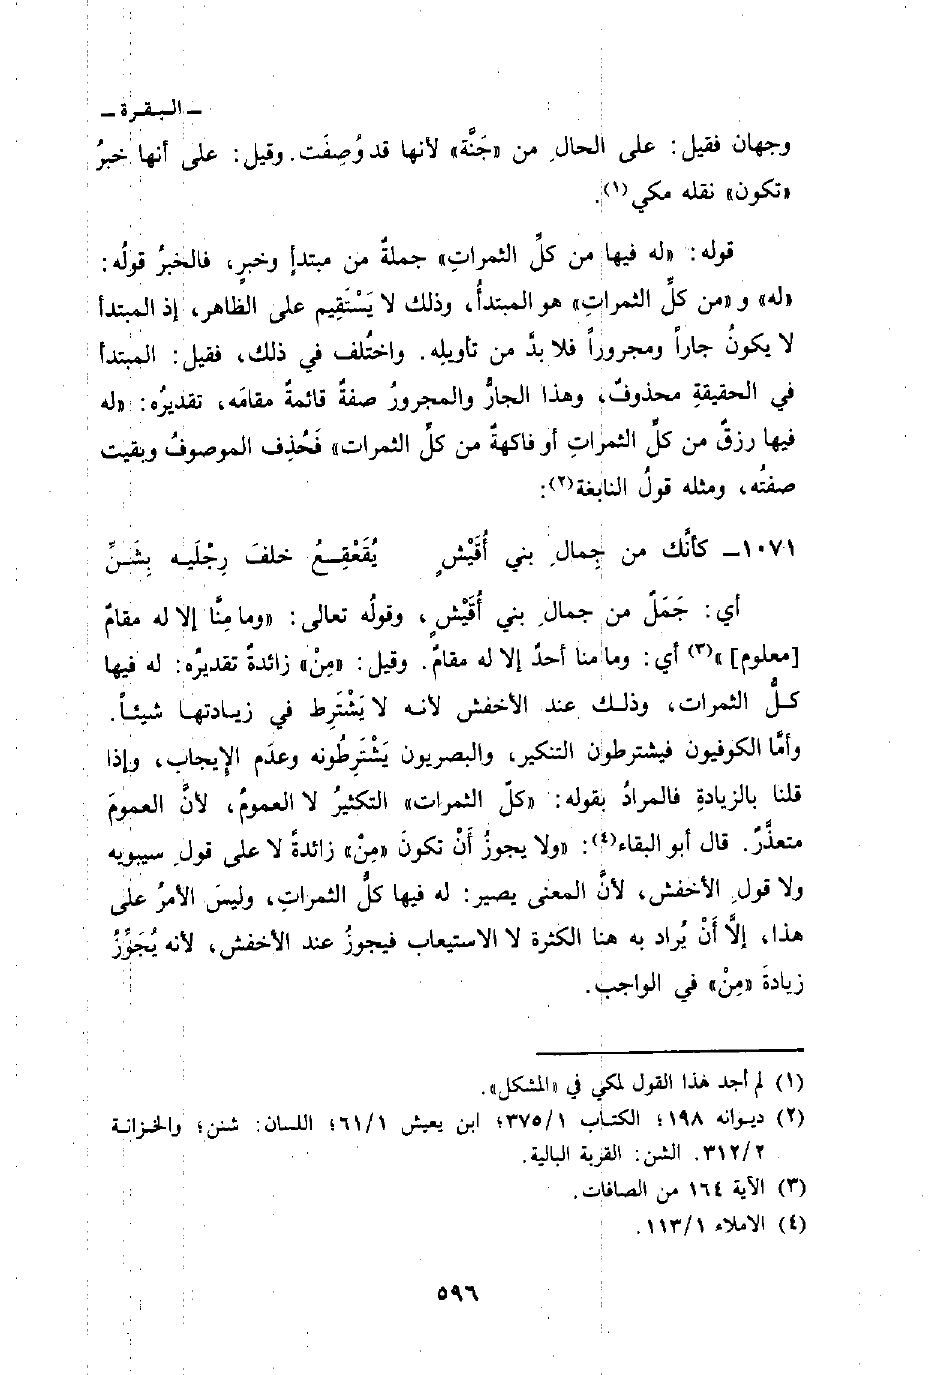 ـ البقرة ـ
وجهان فقيل: على الحالِ من «جَنَّة» لأنها قد وُصِفَت. وقيل: على أنها خبرُ
«تكون» نقله مكي(١).
قوله: «له فيها من كلِّ الثمراتِ» جملةٌ من مبتدأ وخبرٍ، فالخبرُ قولُه:
«له» و «من كلِّ الثمراتِ» هو المبتدأُ، وذلك لا يَسْتَقِيم على الظاهر، إذ المبتدأ
لا يكونُ جاراً ومجروراً فلا بدَّ من تأويلِه. واختُلف في ذلك، فقيل: المبتدأ
في الحقيقةِ محذوفٌ، وهذا الجارُّ والمجرورُ صفةٌ قائمةٌ مقامَه، تقديرُه: «له
فيها رزقٌ من كلِّ الثمراتِ أو فاكهةٌ من كلِّ الثمرات» فَحُذِف الموصوفُ وبقيت
صفتُه، ومثله قولُ النابغة(٢):
١٠٧١ـ كأنَّك من جِمالِ بني أُقَيْشٍ يُقَعْقِعُ خلفَ رِجْلَيه بِشَنِّ
أي: جَمَلٌ من جمالِ بني أُقَيْشٍ، وقولُه تعالى: «وما مِنَّا إلا له مقامٌ
[معلوم]»(٣) أي: وما منا أحدٌ إلا له مقامٌ. وقيل: «مِنْ» زائدةٌ تقديرُه: له فيها
كلُّ الثمرات، وذلك عند الأخفش لأنه لا يَشْتَرِط في زيادتها شيئاً.
وأمَّا الكوفيون فيشترطون التنكير، والبصريون يَشْتَرِطُونه وعدَم الإيجاب، وإذا
قلنا بالزيادةِ فالمرادُ بقوله: «كلّ الثمرات» التكثيرُ لا العمومُ، لأنَّ العمومَ
متعذَّرٌ. قال أبو البقاء(٤): «ولا يجوزُ أَنْ تكونَ «مِنْ» زائدةً لا على قولِ سيبويه
ولا قولِ الأخفش، لأنَّ المعنى يصير: له فيها كلُّ الثمراتِ، وليسَ الأمرُ على
هذا، إلَّا أَنْ يُراد به هنا الكثرة لا الاستيعاب فيجوزُ عند الأخفش، لأنه يُجَوِّزُ
زيادةَ «مِنْ» في الواجب.
(١) لم أجد هذا القول لمكي في «المشكل».
(٢) ديوانه ١٩٨؛ الكتاب ٣٧٥/١؛ ابن يعيش ٦١/١؛ اللسان: شنن؛ والخزانة
٣١٢/٢. الشن: القربة البالية.
(٣) الآية ١٦٤ من الصافات.
(٤) الاملاء ١١٣/١.
٥٩٦